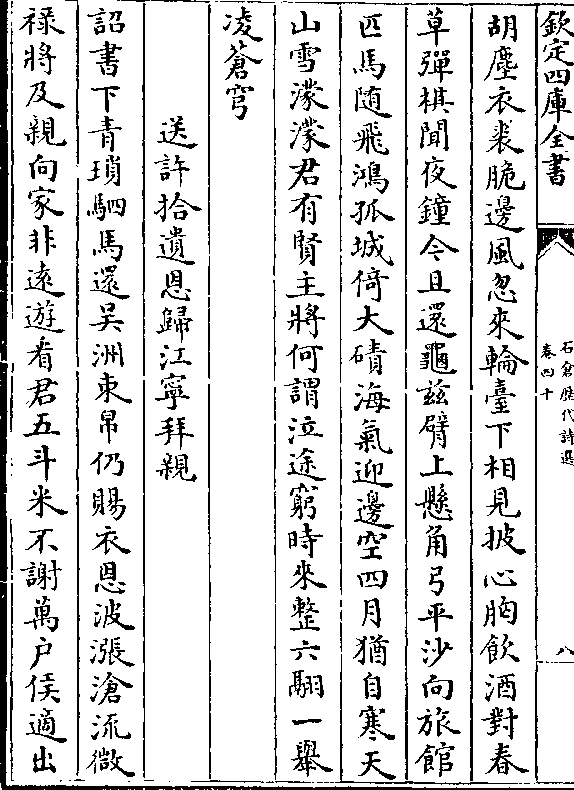 欽定四庫全書
石倉歴代詩選
卷四十
八
胡塵衣裘脆邊風忽來輪臺下相見披心胸飲酒對春
草彈棋聞夜鐘今且還龜兹臂上懸角弓平沙向旅館
匹馬随飛鴻孤城倚大磧海氣迎邊空四月猶自寒天
山雪濛濛君有賢主將何謂泣途窮時來整六翮一舉
凌蒼穹
送許拾遺恩歸江寧拜親
詔書下青瑣駟馬還吳洲束帛仍賜衣恩波漲滄流微
禄將及親向家非遠遊看君五斗米不謝萬户侯適出